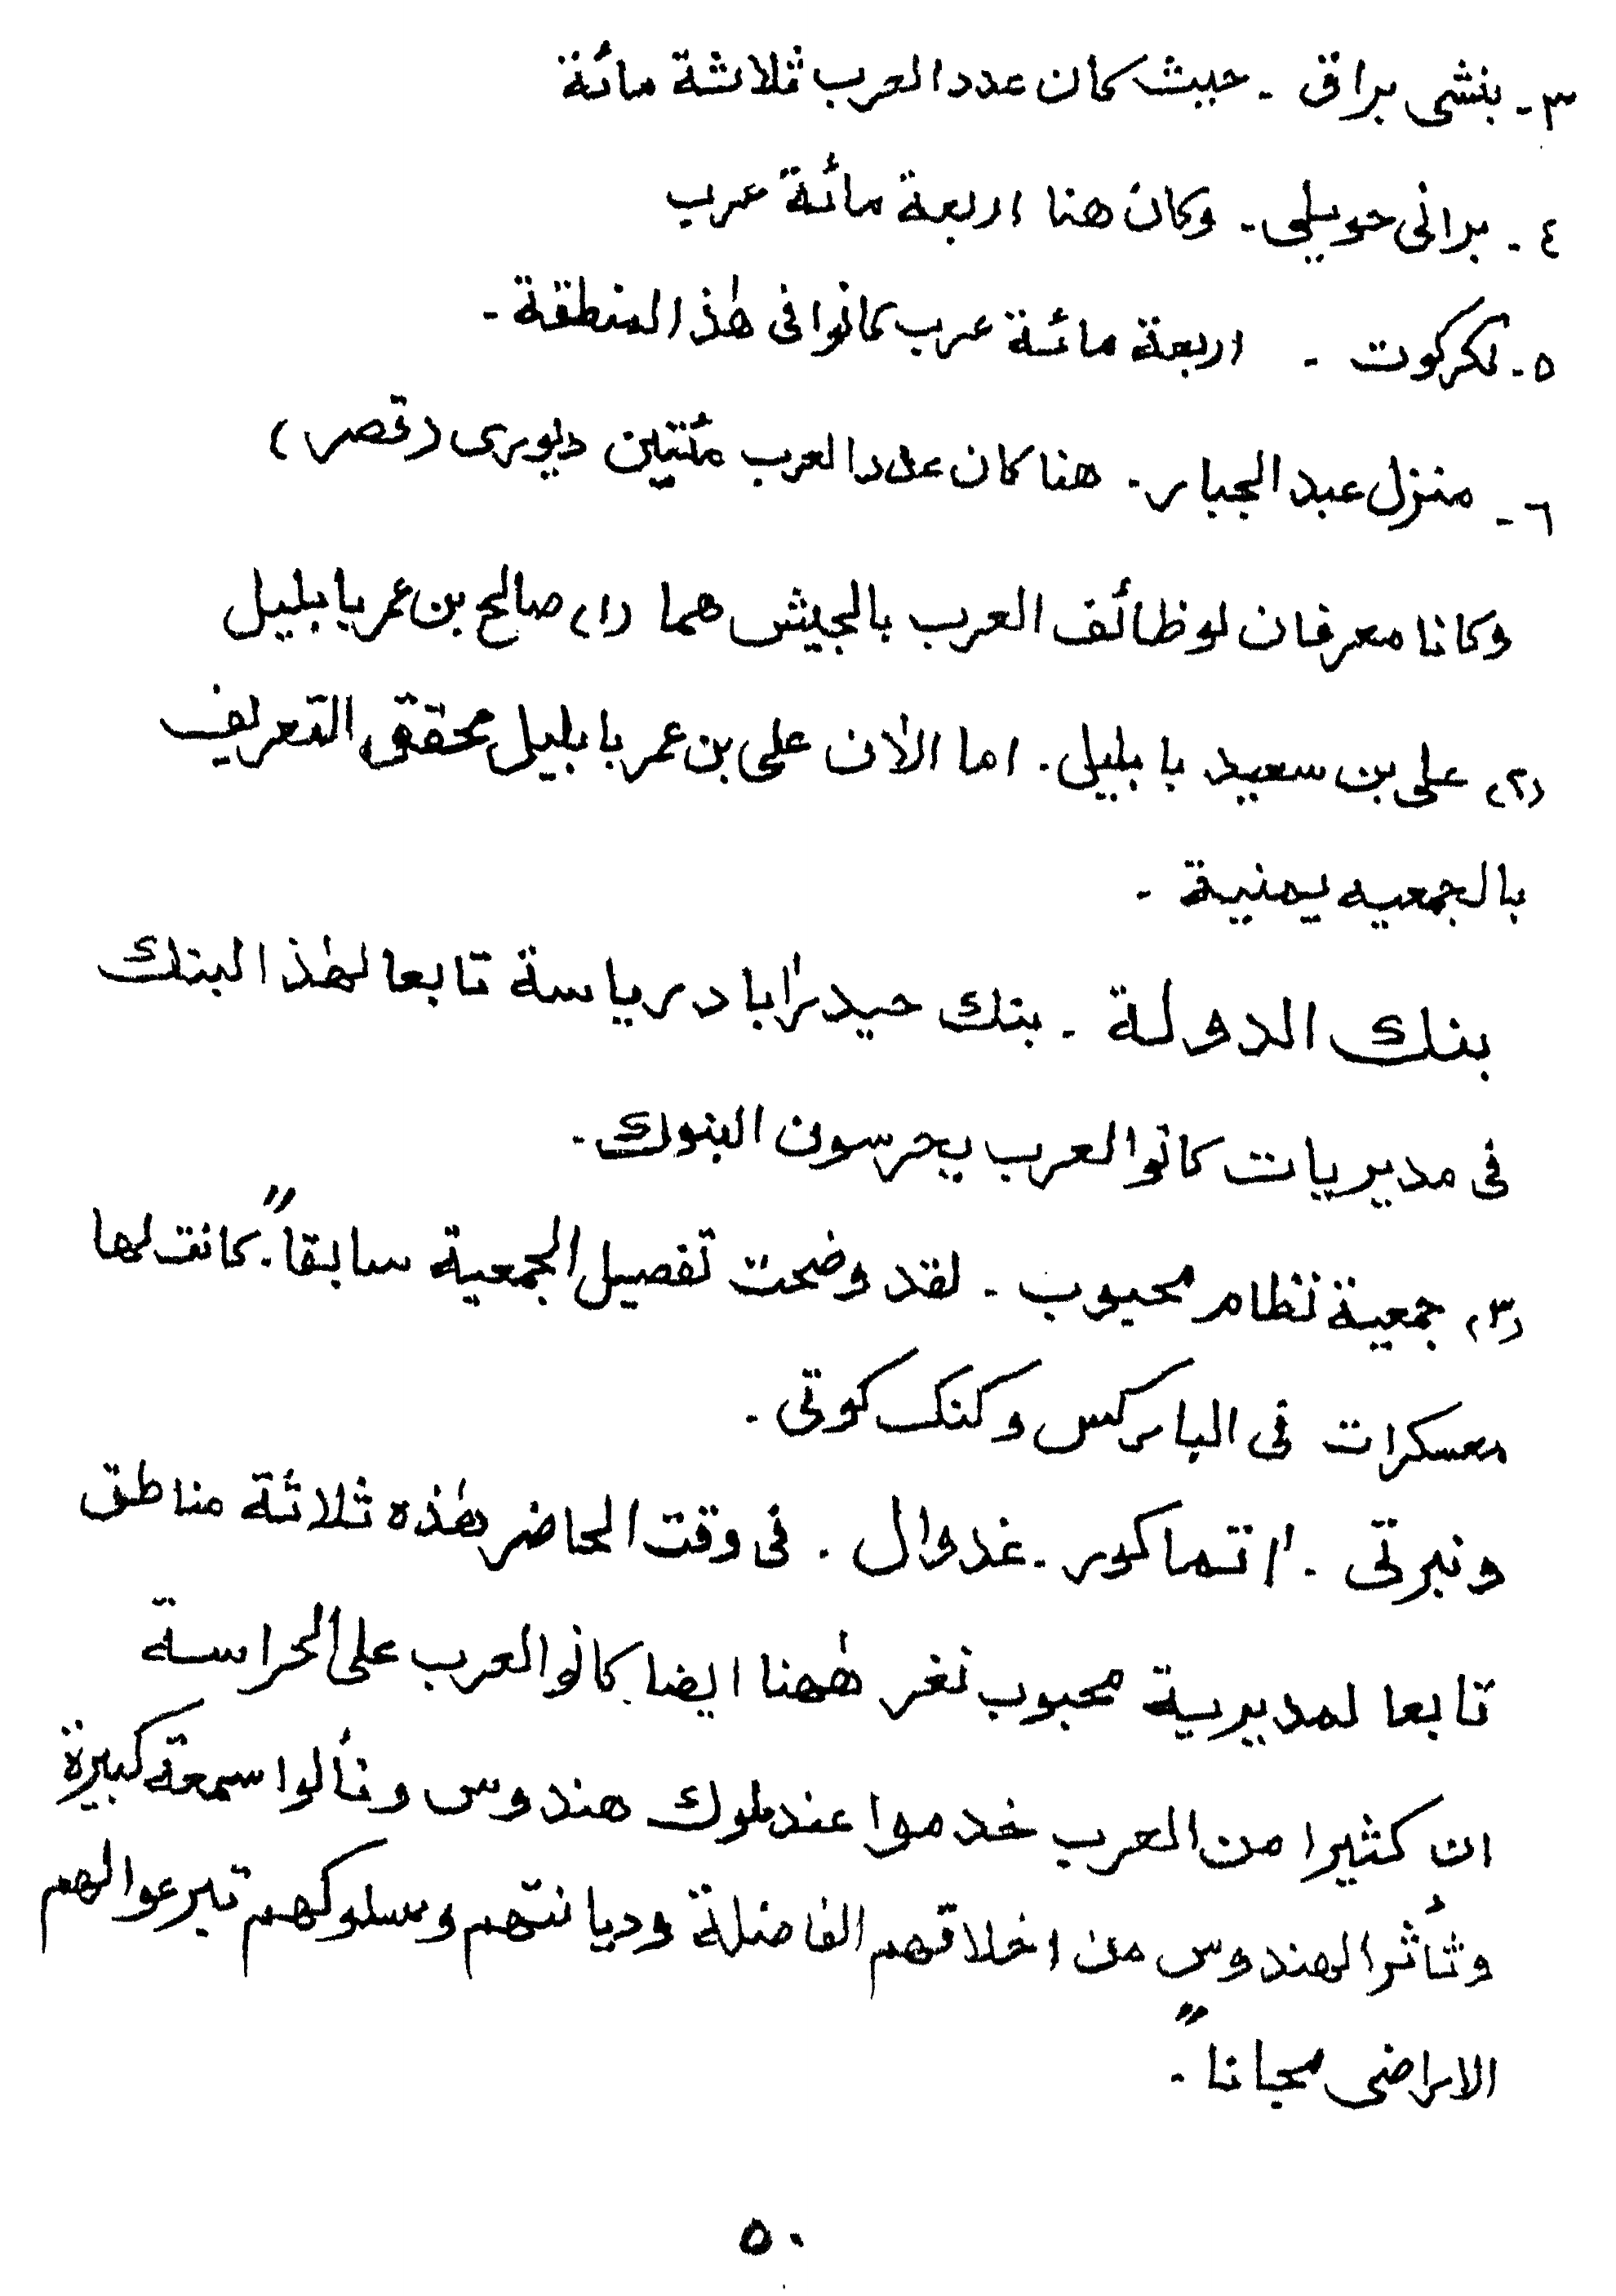 ٣- بنشى براق - حيث كان عدد العرب ثلاثة مائة
٤- برانى حويلى - وكان هنا اربعة مائة عرب
٥- لكركوت - اربعة مائة عرب كانوا فى هٰذا المنطقة -
٦- منزل عبد الجبار - هنا كان عدد العرب مئتين ديورى (قصر)
وكانا معرفان لوظائف العرب بالجيش هما (١) صالح بن عمر بابليل
(٢) على بن سعيد بابليل . اما الاٰن على بن عمر بابليل محققى التعريف
بالجمعيه يمنية -
بنك الدولة - بنك حيدرٰاباد رياسة تابعا لهٰذا البنك
فى مديريات كانوا العرب يحرسون البنوك -
(٣) جمعية نظام محبوب - لقد وضحت تفصيل الجمعية سابقاً . كانت لها
معسكرات فى الباركس وكنك كوتى .
ونبرتى . اتماكور - غدوال . فى وقت الحاضر هٰذه ثلاثة مناطق
تابعا لمديرية محبوب نغر هٰهنا ايضا كانوا العرب على الحراسة
ان كثيرا من العرب خدموا عند ملوك هندوس ونألوا سمعة كبيرة
وتأثر الهندوس من اخلاقهم الفاضلة وديانتهم وسلوكهم تبرعوا لهم
الاراضى مجاناً -
٥٠